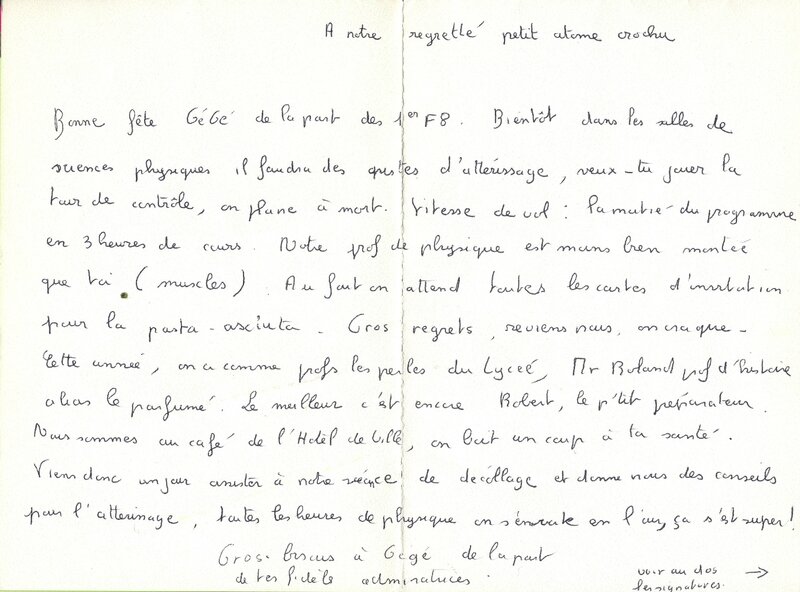 A notre regretté petit atome crochu
Bonne fête GéGé de la part des 1ères F8. Bientôt dans les salles de
sciences physiques il faudra des pistes d'attérissage, veux-tu jouer la
tour de contrôle, on plane à mort. Vitesse de vol : la moitié du programme
en 3 heures de cours. Notre prof de physique est moins bien montée
que toi (muscles). Au fait on attend toutes les cartes d'invitation
pour la pasta-asciuta. Gros regrets, reviens nous, on craque-
Cette année, on a comme profs les perles du Lyceé, Mr Boland prof d'histoire
alias le parfumé. Le meilleur c'est encore Robert, le p'tit préparateur.
Nous sommes au café de l'Hotel de Ville, on boit un coup à ta santé.
Viens donc un jour assister à notre séance de décollage et donne nous des conseils
pour l'atterissage, toutes les heures de physique on s'envole en l'air, ça s'est super!
Gros bisous à Gégé de la part
de tes fidèle admiratrices.
voir au dos →
les signatures.